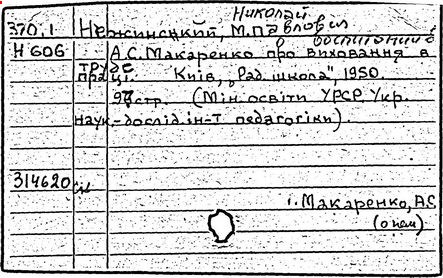 Николай
370.1 Нежинський, М.Павлович
о воспитании в
Н 606 А.С.Макаренко про виховання в
труде
праці. Київ, "Рад. школа", 1950.
97стр. (Мін. освіти УРСР. Укр.
наук.-дослід. ін-т педагогіки).
314620
i. Макаренко, А.С.
(о нем)